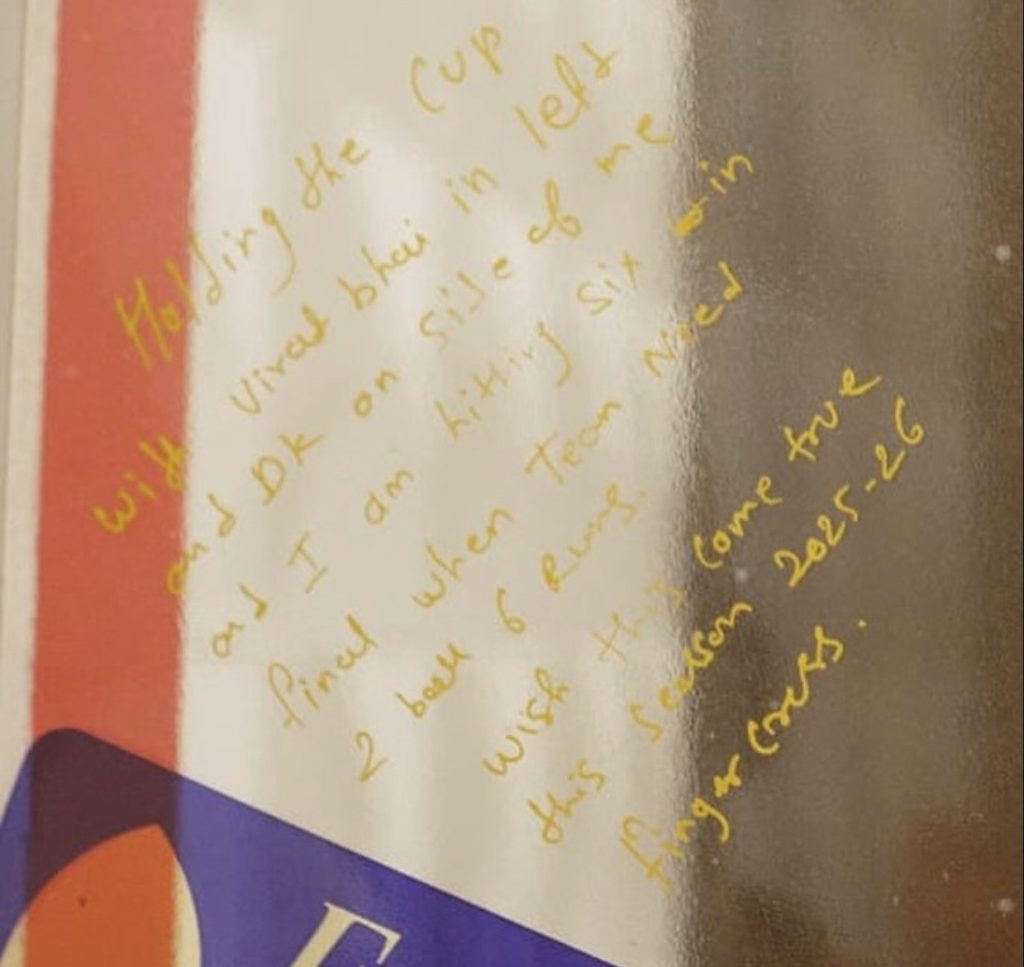 Holding the Cup
with Virat bhai in left
and DK on side of me
and I am hitting six in
final when Team Need
2 ball 6 Runs.
wish this come true
this season 2025-26
finger cross.
E